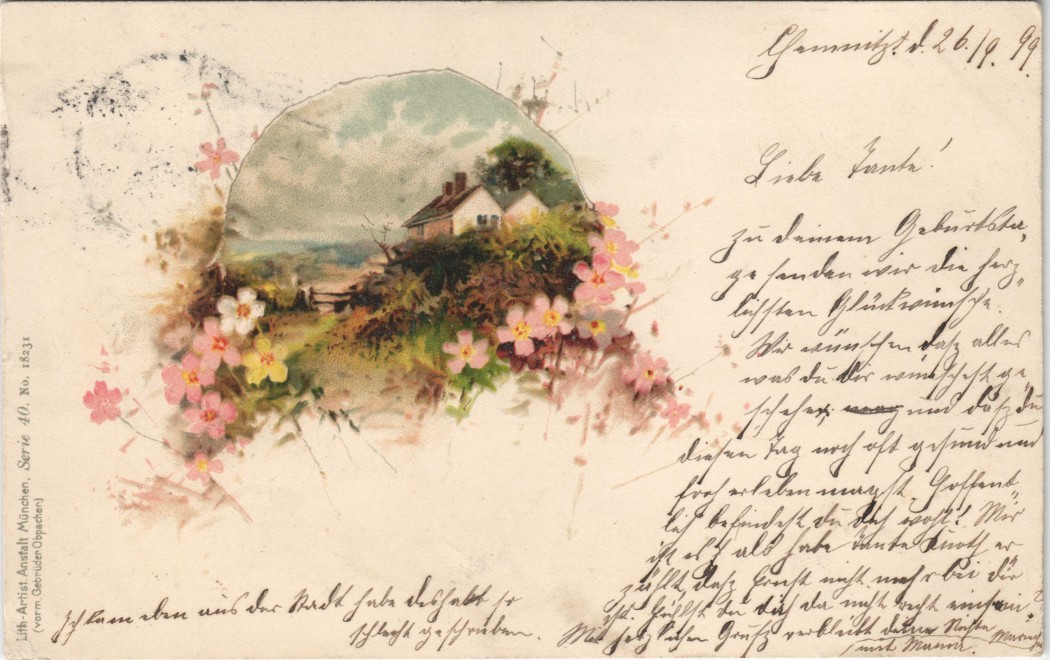 Chemnitz d. 26./9. 99
Liebe Tante!
zu deinem Geburtsta-
ge senden wir die herz-
lichsten Glückwünsche.
Wir wünschen, daß alles
was du dir wünschest ge
schehe, und daß du
diesen Tag noch oft gesund und
froh erleben magst. Hoffent-
lich befindest du dich wohl! Mir
ist es, als habe Tante er
zählt, daß Ernst nicht mehr bei dir
ist. Fühlst du dich da nicht recht einsam?
Mit herzlichem Gruß verbleibt deine Nichte
mit Mama.
Ich kam eben aus der Stadt habe deshalb so
schlecht geschrieben.
Lith.-Artist. Anstalt München, Serie 40. No. 18231
(vorm. Gebrüder Obpacher)